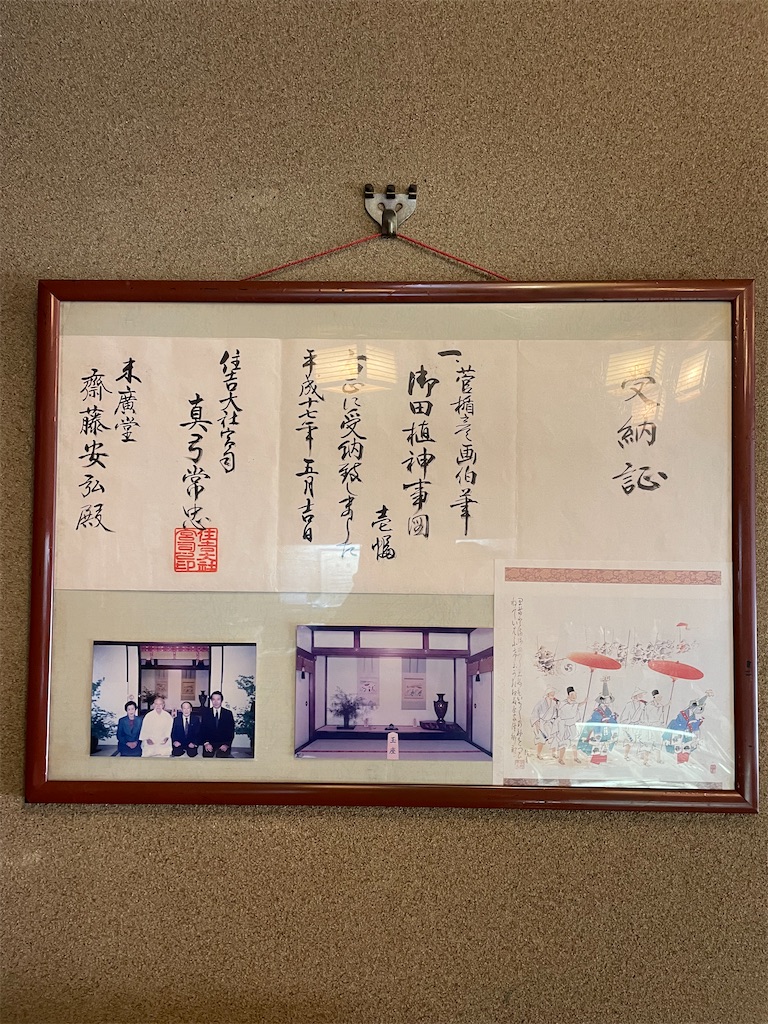 受納証
一、菅楯彦画伯筆
御田植神事図
壱幅
右正に受納致しました
平成十七年五月吉日
住吉大社宮司
真弓常忠
住吉大社宮司之印
末廣堂
齋藤安弘殿
玉座